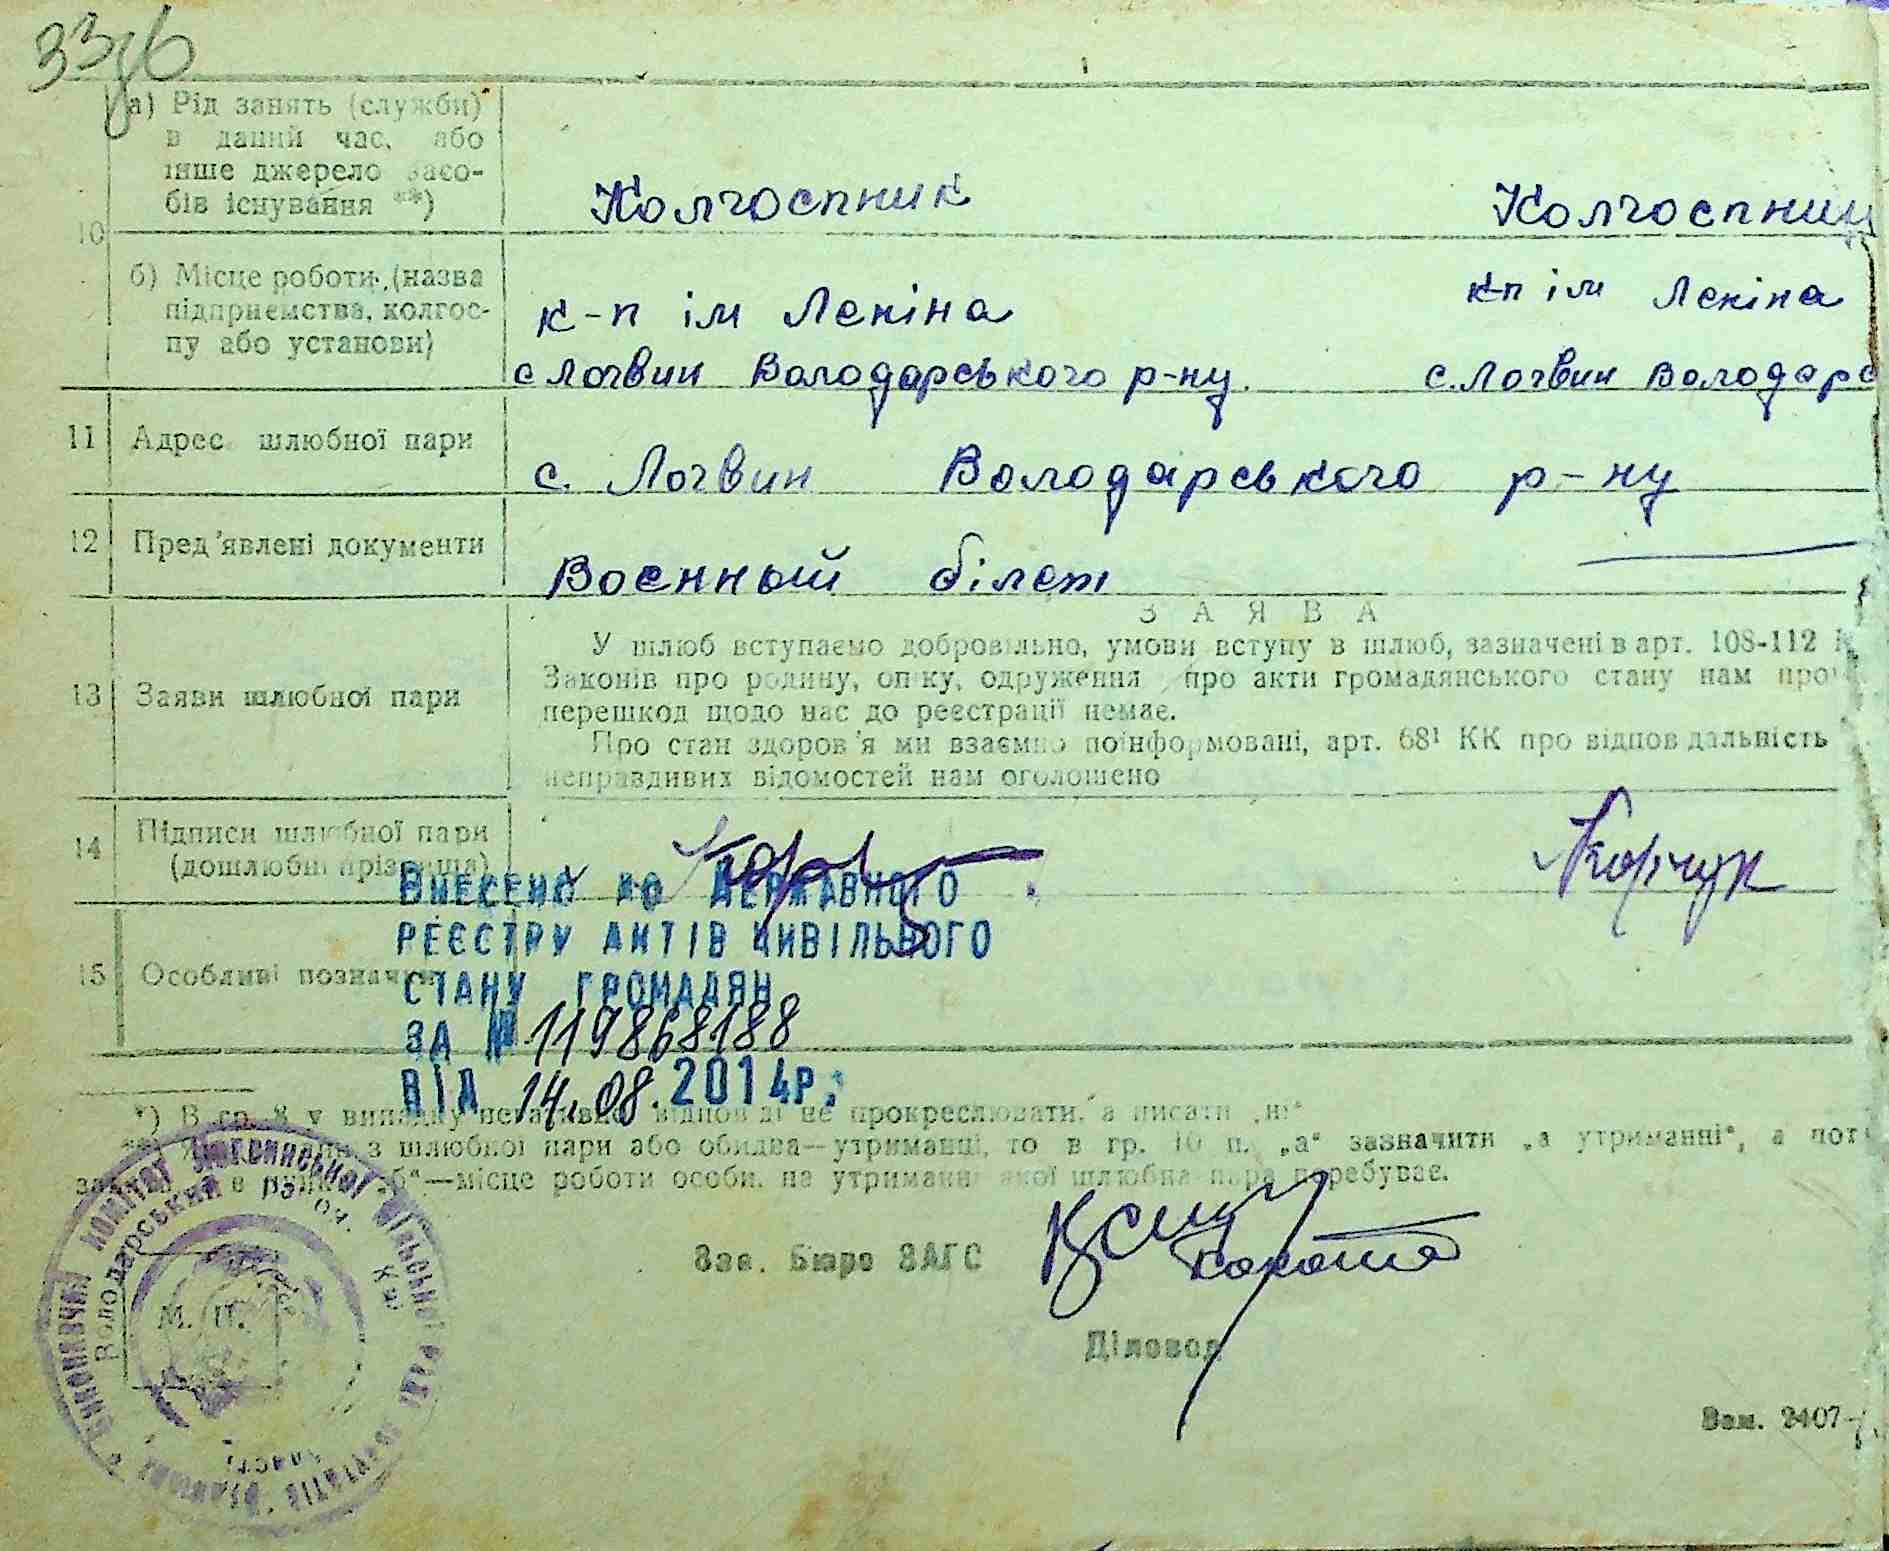 33зв
а) Рід занять (служби)
в даний час, або
інше джерело засо-
бів існування **)
Колгоспник Колгоспниц
10
б) Місце роботи, (назва
підприємства, колгос-
пу або установи)
к-п ім Леніна к-п ім Леніна
с Логвин Володарського р-ну. с. Логвин Володарс
11 Адрес шлюбної пари
с. Логвин Володарського р-ну
12 Пред'явлені документи
Воєнный білет
ЗАЯВА
У шлюб вступаємо добровільно, умови вступу в шлюб, зазначені в арт. 108-112 К
Законів про родину, опіку, одруження про акти громадянського стану нам про
перешкод щодо нас до реєстрації немає.
13 Заяви шлюбної пари
Про стан здоров'я ми взаємно поінформовані, арт. 68¹ КК про відповідальність
неправдивих відомостей нам оголошено
14 Підписи шлюбної пари
(дошлюбні прізвища)
Корчук
ВНЕСЕНО ДО ДЕРЖАВНОГО
РЕЄСТРУ АКТІВ ЦИВІЛЬНОГО
15 Особливі позначки
СТАНУ ГРОМАДЯН
ЗА № 119868188
ВІД 14.08.2014р.
*) В гр. 8 у випадку негативної відповіді не прокреслювати, а писати „ні“
**) Якщо один з шлюбної пари або обидва—утриманці, то в гр. 10 п. „а“ зазначити „а утриманні“, а пот
в пункті „б“—місце роботи особи, на утриманні якої шлюбна пара перебуває.
ВИКОНАВЧИЙ КОМІТЕТ ЛОГВИНСЬКОЇ СІЛЬСЬКОЇ РАДИ ДЕПУТАТІВ ТРУДЯЩИХ
Володарський район. Киї області
М. П.
Зав. Бюро ЗАГС
Діловод
Зам. 2407-